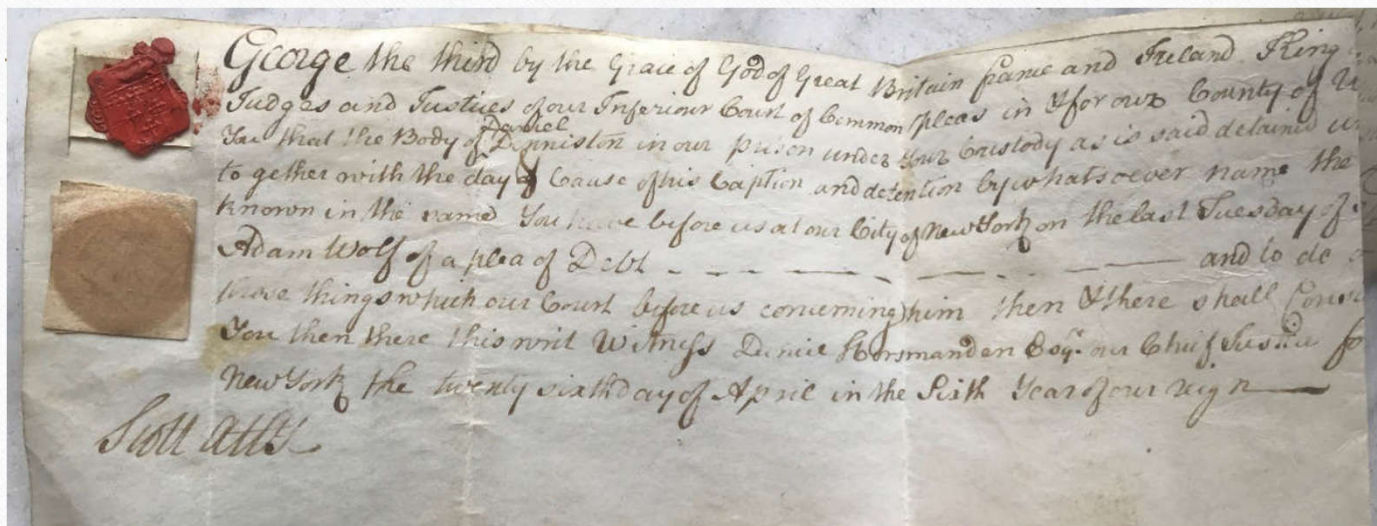 George the third by the Grace of God of Great Britain france and Ireland King
Judges and Justices of our Inferiour Court of Common pleas in & for our County of
You that the Body of Daniel Denniston in our prison under Your Custody as is said detained
to gether with the day & Cause of his Caption and detention by whatsoever name the
known in the same You have before us at our City of New York on the last Tuesday of
Adam Wolf of a plea of Debt - - - - - - - - and to do
those things which our Court before us concerning him then & there shall
You then there this writ Witness Daniel Horsmanden Esqr. our Chief Justice
New York the twenty sixth day of April in the Sixth Year of our reign
Scott Atty